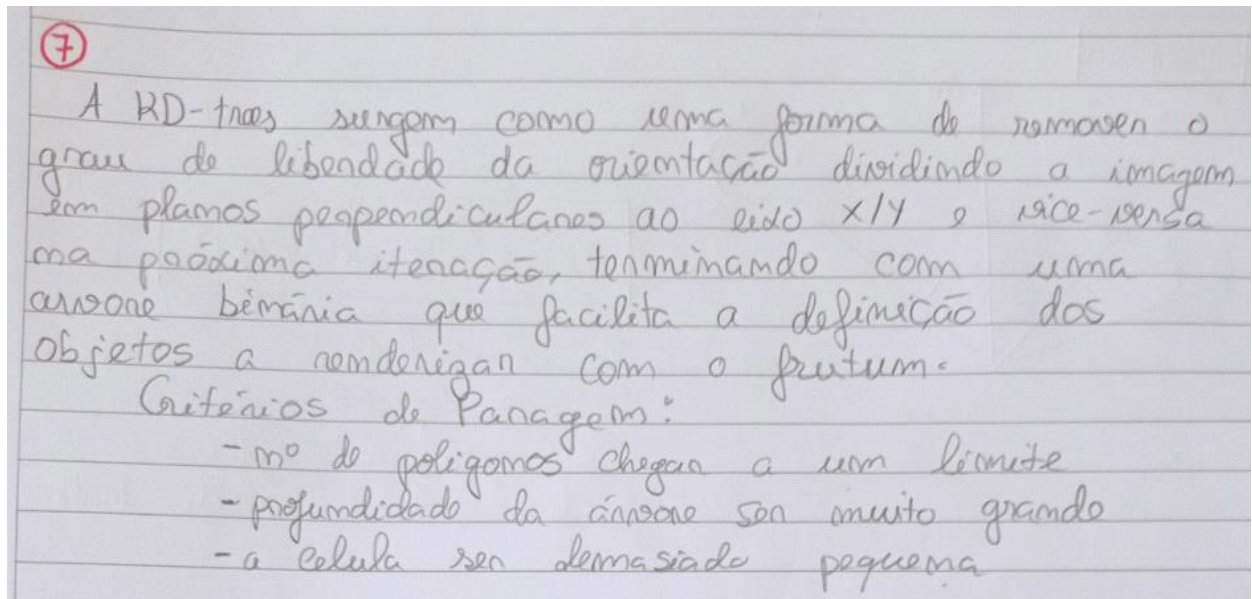 7
A KD-trees surgem como uma forma de remover o
grau de liberdade da orientação dividindo a imagem
em planos perpendiculares ao eixo X/Y e vice-versa
na próxima iteração, terminando com uma
arvore binária que facilita a definição dos
objetos a renderizar com o frutum.
Critérios de Paragem:
- nº de poligonos chegar a um limite
- profundidade da árvore ser muito grande
- a celula ser demasiado pequena